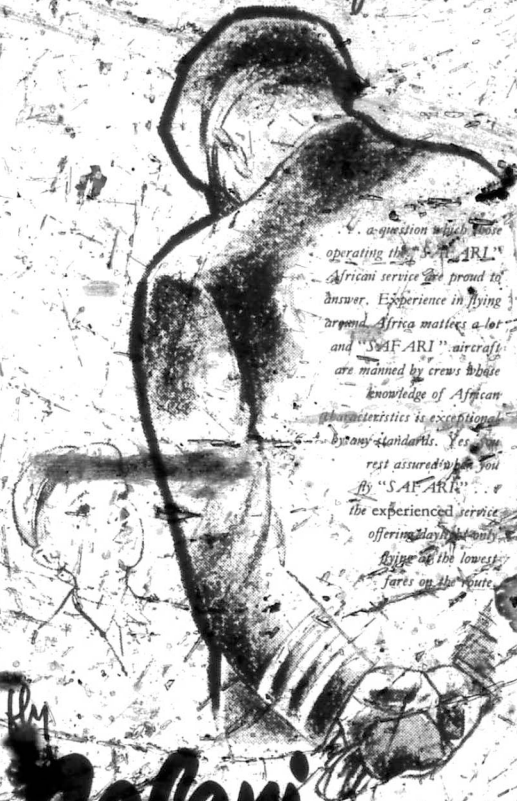 . . a question which those
operating the "SAFARI"
African service are proud to
answer. Experience in flying
around Africa matters a lot
and "SAFARI" aircraft
are manned by crews whose
knowledge of African
characteristics is exceptional
by any standards. Yes you
rest assured when you
fly "SAFARI" . . .
the experienced service
offering daylight only
flying at the lowest
fares on the route.
Fly
Safari